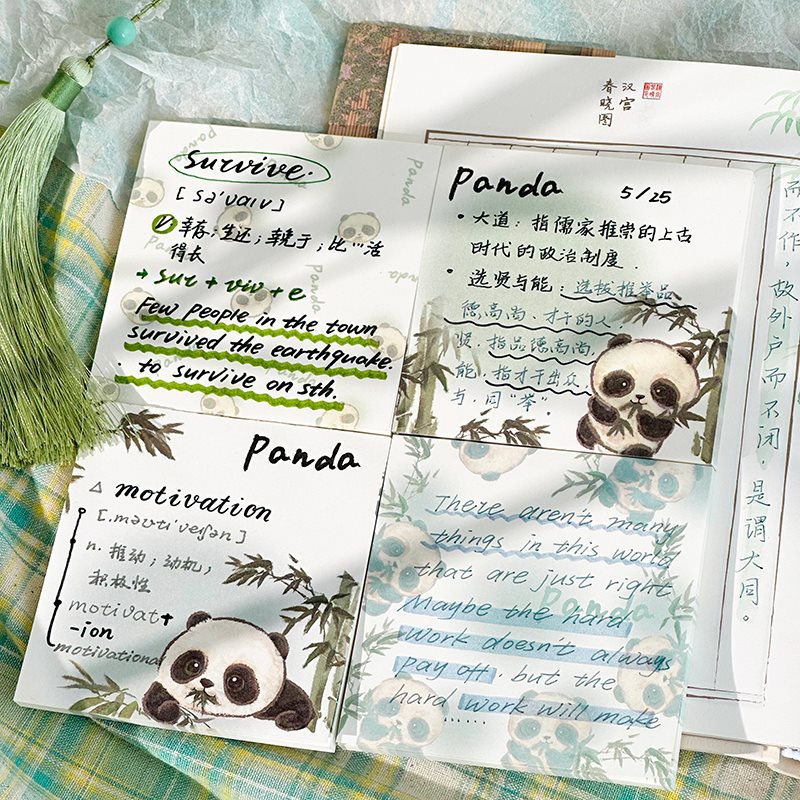 survive.
[sə'vaɪv]
幸存；生还；幸免于；比…活
得长
→ sur + viv + e
Few people in the town
survived the earthquake.
· to survive on sth.
Panda 5/25
• 大道：指儒家推崇的上古
时代的政治制度.
• 选贤与能：选拔推举品
德高尚、才干的人.
贤，指品德高尚，
能，指才干出众.
与，同“举”.
Panda
△ motivation
[.məʊti'veʃən]
n. 推动；动机；
积极性
motivat+
-ion
motivational
There aren't many
things in this world
that are just right
Maybe the hard
work doesn't always
pay off. but the
hard work will make
......
Panda
Panda
Panda
Panda
Panda
汉宫
春晓图
而不作，故外户而不闭，
是谓大同。